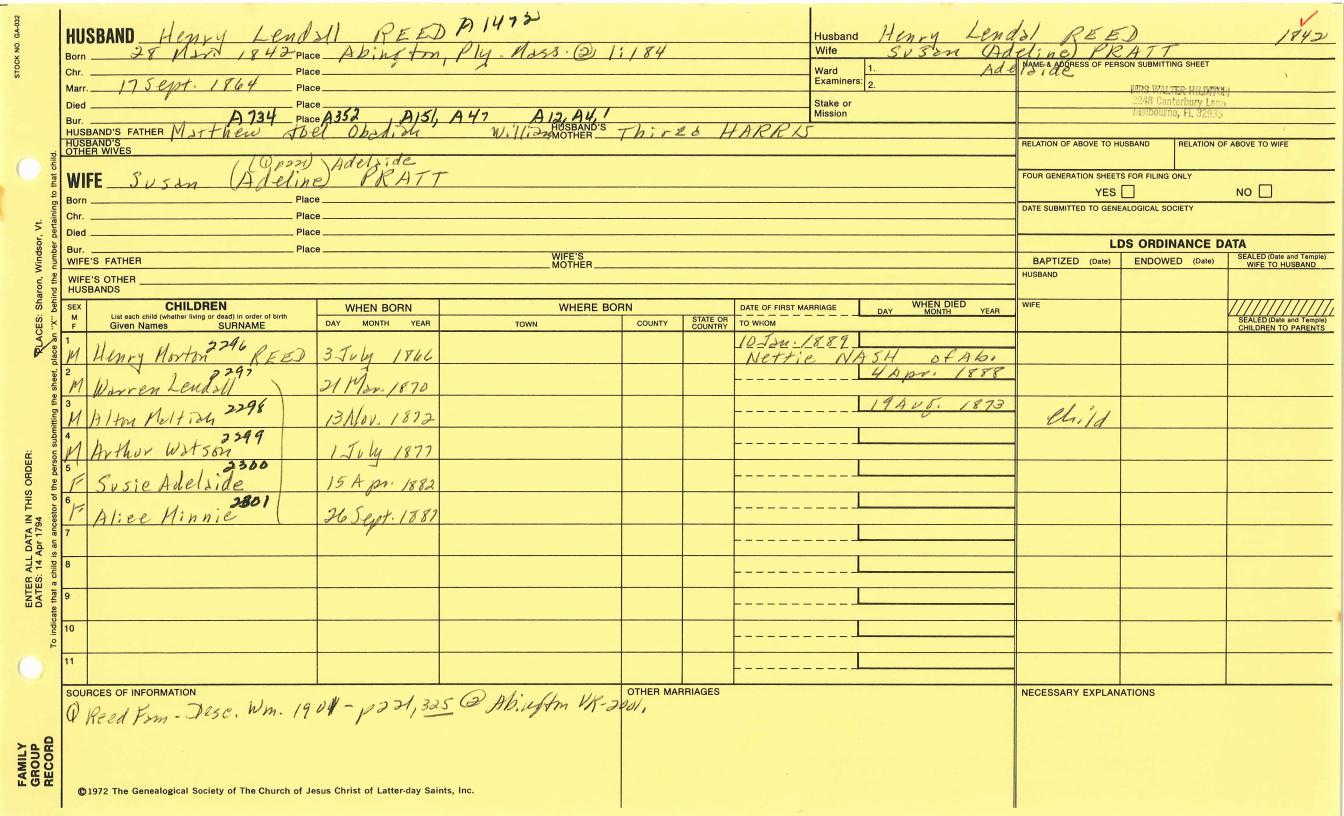 STOCK NO. GA-032
HUSBAND Henry Lendall REED A1472
Born 28 Mar. 1842 Place Abington, Ply. Mass. (2) 1:184
Chr. Place
Marr. 17 Sept. 1864 Place
Died Place
Bur. A734 Place A352 A151, A47 A12, A4, 1
HUSBAND'S FATHER Matthew Joel Obadiah William HUSBAND'S MOTHER Thirza HARRIS
HUSBAND'S OTHER WIVES
(1) p221) Adelaide
WIFE Susan (Adeline) PRATT
Born Place
Chr. Place
Died Place
Bur. Place
WIFE'S FATHER WIFE'S MOTHER
WIFE'S OTHER HUSBANDS
Husband Henry Lendal REED 1842
Wife Susan (Adeline) PRATT
Adelaide
Ward Examiners: 1.
2.
Stake or Mission
NAME & ADDRESS OF PERSON SUBMITTING SHEET
2248 Canterbury Lane
Melbourne, FL 32935
RELATION OF ABOVE TO HUSBAND RELATION OF ABOVE TO WIFE
FOUR GENERATION SHEETS FOR FILING ONLY
YES NO
DATE SUBMITTED TO GENEALOGICAL SOCIETY
LDS ORDINANCE DATA
BAPTIZED (Date) ENDOWED (Date) SEALED (Date and Temple) WIFE TO HUSBAND
HUSBAND
WIFE
SEALED (Date and Temple) CHILDREN TO PARENTS
SEX M F CHILDREN WHEN BORN WHERE BORN DATE OF FIRST MARRIAGE WHEN DIED
List each child (whether living or dead) in order of birth
Given Names SURNAME DAY MONTH YEAR TOWN COUNTY STATE OR COUNTRY TO WHOM DAY MONTH YEAR
1 M Henry Morton 2296 REED 3 July 1866 10 Jan. 1889
Nettie NASH of Ab.
2 M Warren Lendall 2297 21 Mar. 1870 4 Apr. 1888
3 M Alton Meltiah 2298 13 Nov. 1872 19 Aug. 1873 Child
4 M Arthur Watson 2299 1 July 1877
5 F Susie Adelaide 2300 15 Apr. 1882
6 F Alice Minnie 2301 26 Sept. 1887
7
8
9
10
11
SOURCES OF INFORMATION
(1) Reed Fam - Desc. Wm. 1901 - p221, 325 (2) Abington VR-2001.
OTHER MARRIAGES
NECESSARY EXPLANATIONS
©1972 The Genealogical Society of The Church of Jesus Christ of Latter-day Saints, Inc.
ENTER ALL DATA IN THIS ORDER:
DATES: 14 Apr 1794
PLACES: Sharon, Windsor, Vt.
To indicate that a child is an ancestor of the person submitting the sheet, place an "X" behind the number pertaining to that child.
FAMILY GROUP RECORD